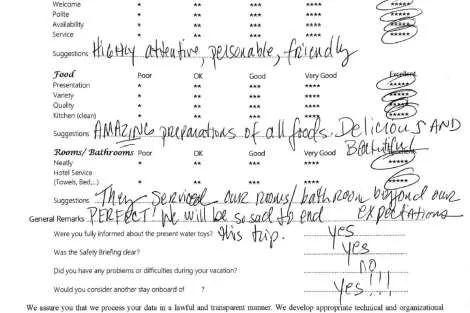 Welcome * ** *** **** *****
Polite * ** *** **** *****
Availability * ** *** **** *****
Service * ** *** **** *****
Suggestions Highly attentive, personable, friendly
Food Poor OK Good Very Good Excellent
Presentation * ** *** **** *****
Variety * ** *** **** *****
Quality * ** *** **** *****
Kitchen (clean) * ** *** **** *****
Suggestions AMAZING preparations of all foods. Delicious AND
Beautiful
Rooms/ Bathrooms Poor OK Good Very Good Excellent
Neatly * ** *** **** *****
Hotel Service
(Towels, Bed,..) * ** *** **** *****
Suggestions They serviced our rooms/bathroom beyond our
expectations
General Remarks PERFECT! We will be so sad to end
this trip.
Were you fully informed about the present water toys? yes
Was the Safety Briefing clear? yes
Did you have any problems or difficulties during your vacation? no
Would you consider another stay onboard of ? yes!!!
We assure you that we process your data in a lawful and transparent manner. We develop appropriate technical and organizational